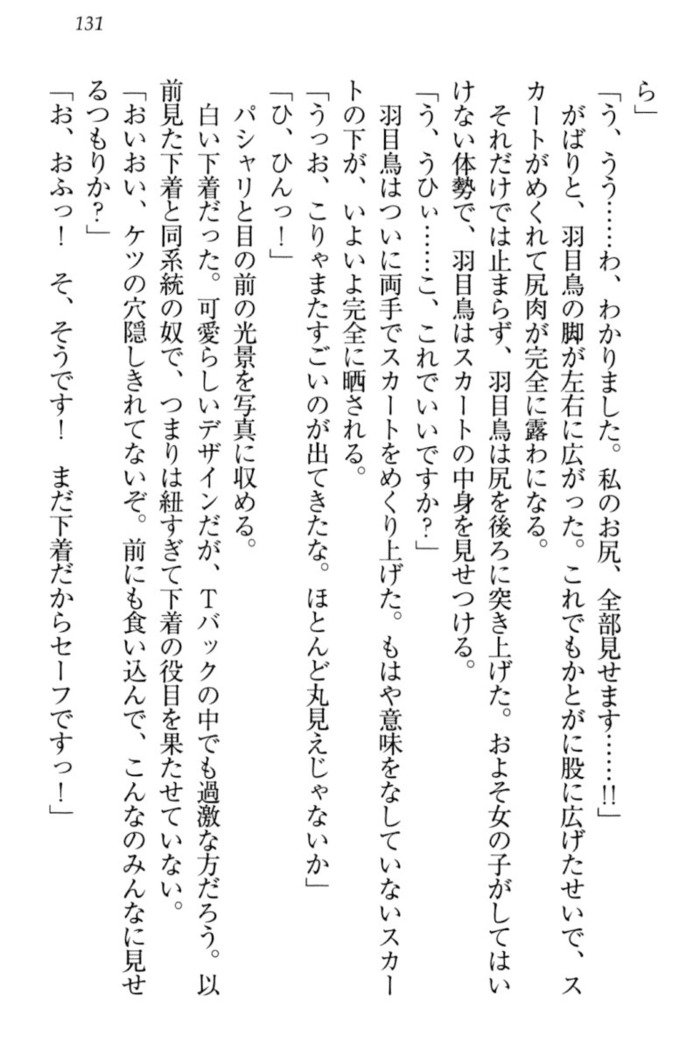 131
ら」
「う、うう……わ、わかりました。私のお尻、全部見せます……!!」
がばりと、羽目鳥の脚が左右に広がった。これでもかとがに股に広げたせいで、ス
カートがめくれて尻肉が完全に露わになる。
それだけでは止まらず、羽目鳥は尻を後ろに突き上げた。およそ女の子がしてはい
けない体勢で、羽目鳥はスカートの中身を見せつける。
「う、うひぃ……こ、これでいいですか？」
羽目鳥はついに両手でスカートをめくり上げた。もはや意味をなしていないスカー
トの下が、いよいよ完全に晒される。
「うっお、こりゃまたすごいのが出てきたな。ほとんど丸見えじゃないか」
「ひ、ひんっ！」
パシャリと目の前の光景を写真に収める。
白い下着だった。可愛らしいデザインだが、Ｔバックの中でも過激な方だろう。以
前見た下着と同系統の奴で、つまりは紐すぎて下着の役目を果たせていない。
「おいおい、ケツの穴隠しきれてないぞ。前にも食い込んで、こんなのみんなに見せ
るつもりか？」
「お、おふっ！　そ、そうです！　まだ下着だからセーフですっ！」